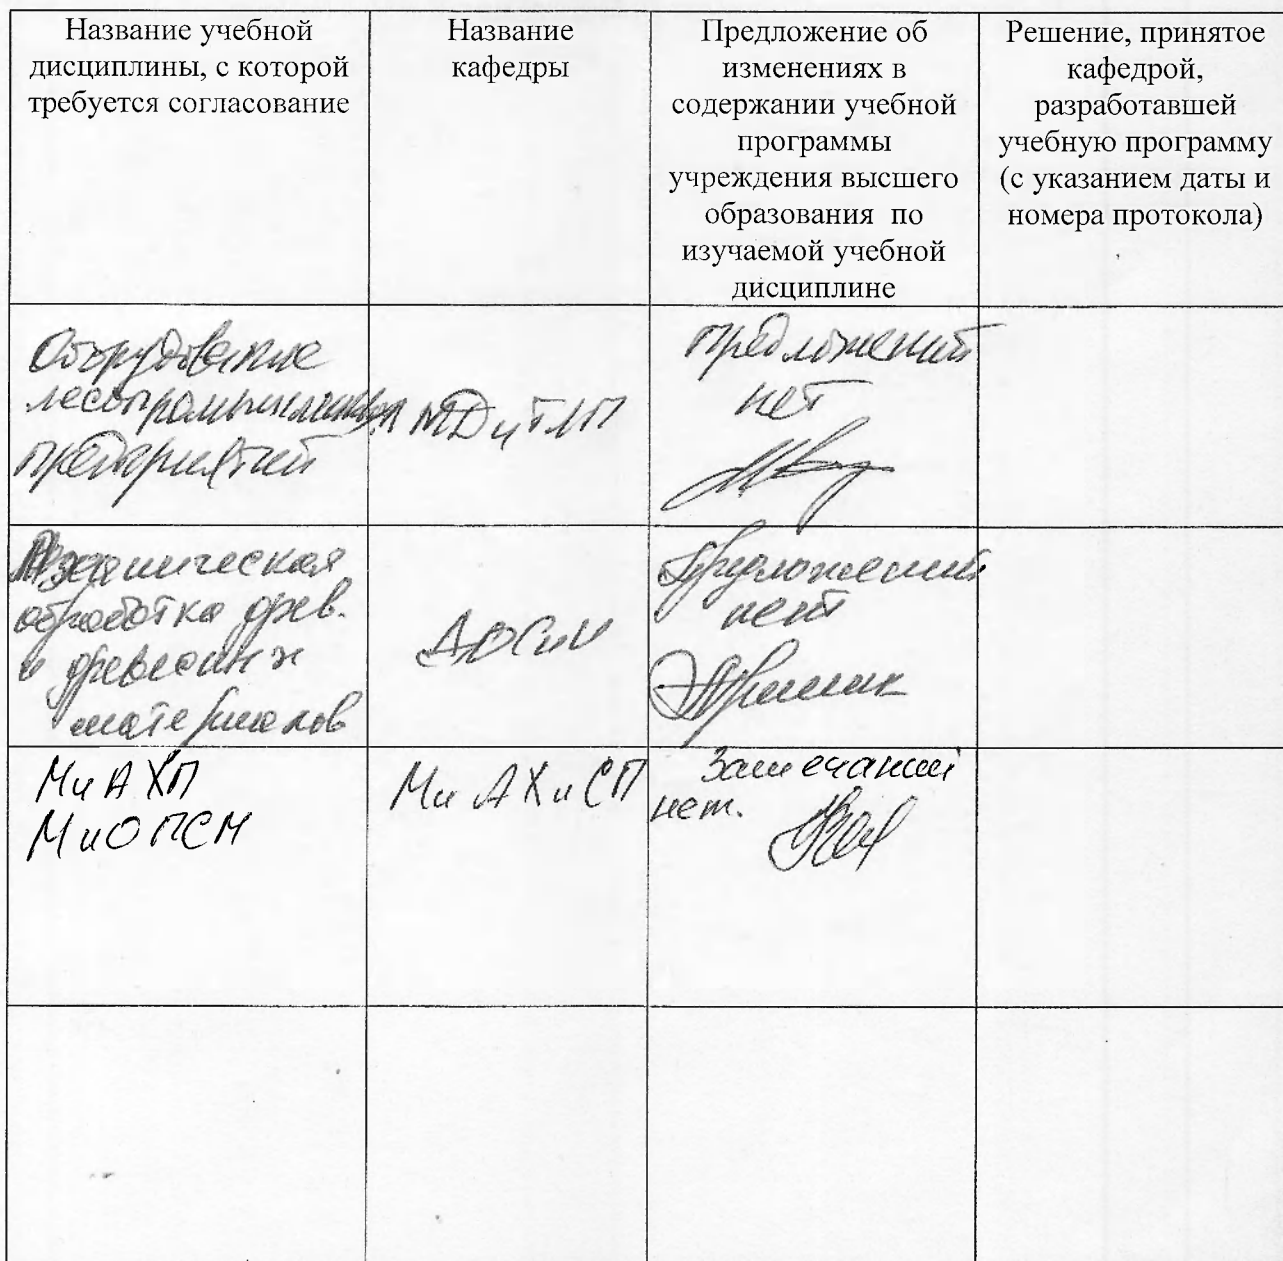 Название учебной
дисциплины, с которой
требуется согласование
Название
кафедры
Предложение об
изменениях в
содержании учебной
программы
учреждения высшего
образования по
изучаемой учебной
дисциплине
Решение, принятое
кафедрой,
разработавшей
учебную программу
(с указанием даты и
номера протокола)
Оборудование
лесопромышленных
предприятий
МДиТЛП
предложений
нет
обработка древ.
и древесных
материалов
ДОСиИ
Предложений
нет
МиАХП
МиОПСМ
МиАХиСП
Замечаний
нет.